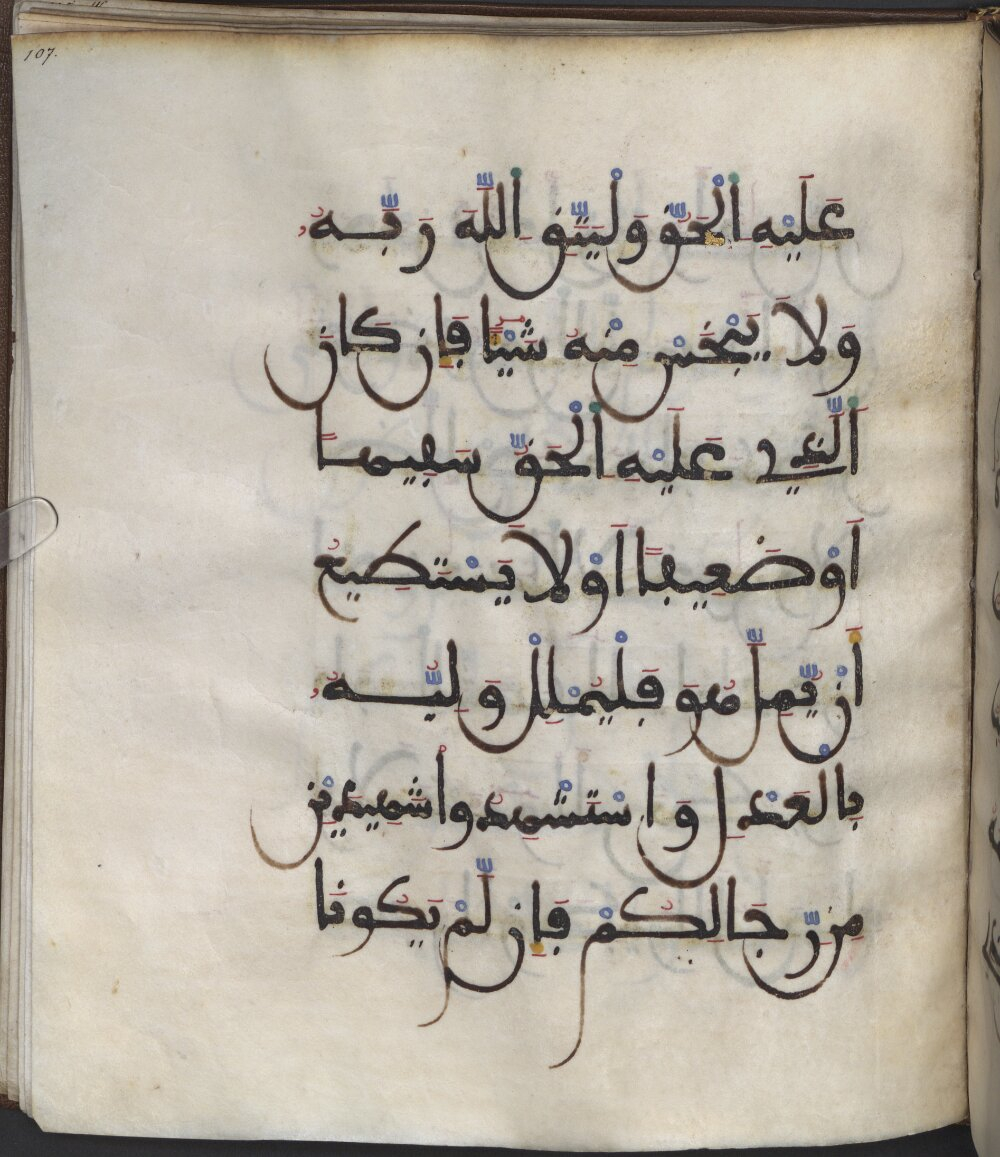 107.
عَلَيْهِ اَلْحَقُّ وَلْيَتَّقِ اِللَّهَ رَبَّهُ
وَلَا يَبْخَسْ مِنْهُ شَيْئًا فَإِن كَانَ
اَلَّذِي عَلَيْهِ اِلْحَقُّ سَفِيهًا
اَوْ ضَعِيفًا اَوْ لَا يَسْتَطِيعُ
أَنْ يُّمِلَّ هُوَ فَلْيُمْلِلْ وَلِيُّهُ
بِالْعَدْلِ وَاسْتَشْهِدُوا شَهِيدَيْنِ
مِن رِّجَالِكُمْ فَإِن لَّمْ يَكُونَا